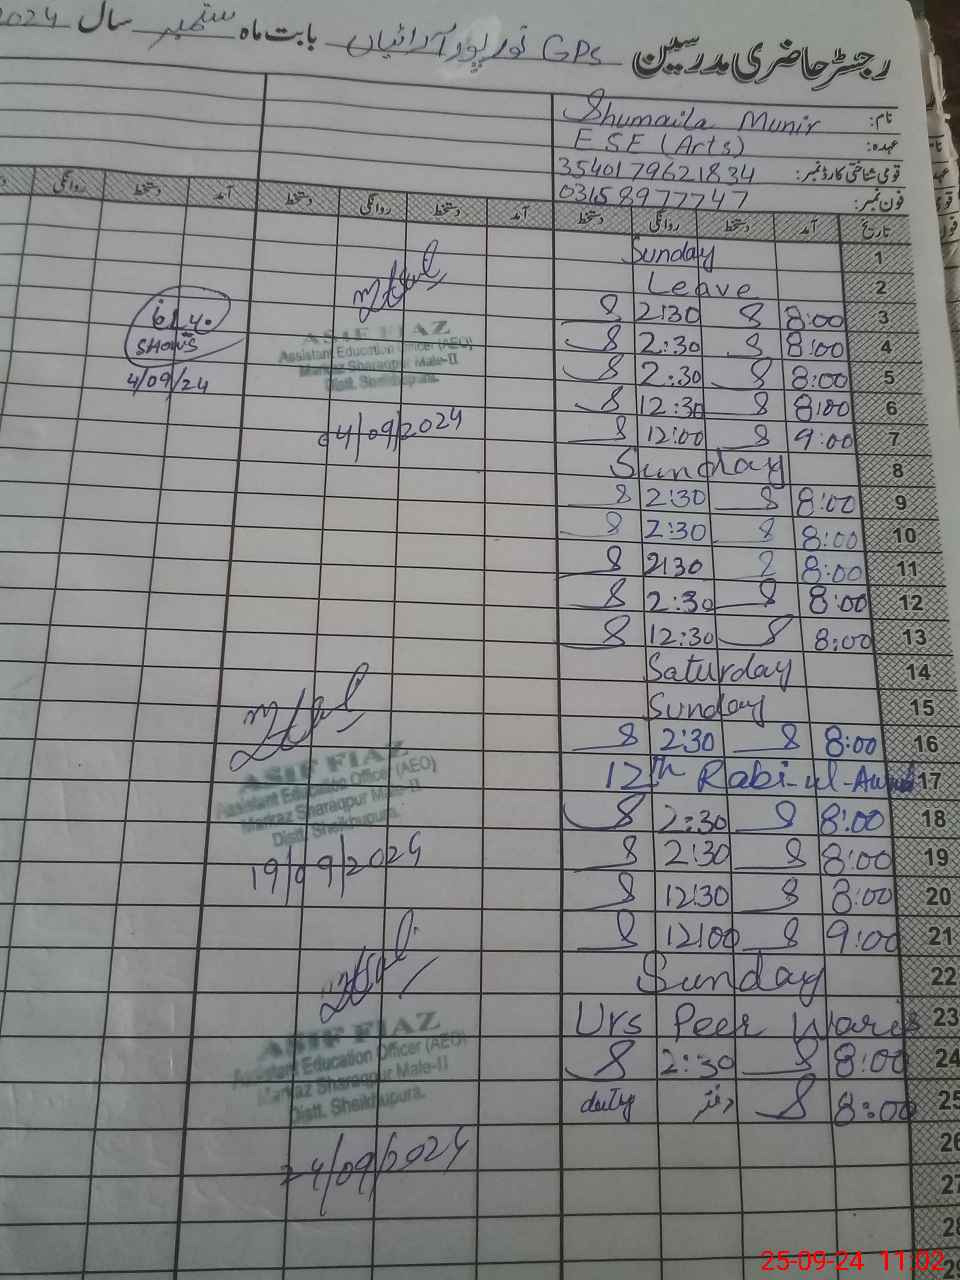 رجسٹر حاضری مدرسین GPS نور پور آرائیاں بابت ماہ ستمبر سال 2024
نام: Shumaila Munir
عہدہ: ESE (Arts)
قومی شناختی کارڈ نمبر: 3540179621834
فون نمبر: 03158977747
تاریخ آمد دستخط روانگی دستخط آمد دستخط روانگی دستخط آمد دستخط روانگی
1 Sunday
2 Leave
3 8:00 8 2:30 8
4 8:00 8 2:30 8
5 8:00 8 2:30 8
6 8:00 8 12:30 8
7 9:00 8 12:00 8
8 Sunday
9 8:00 8 2:30 8
10 8:00 8 2:30 8
11 8:00 8 2:30 8
12 8:00 8 2:30 8
13 8:00 8 12:30 8
14 Saturday
15 Sunday
16 8:00 8 2:30 8
17 12th Rabi-ul-Awal
18 8:00 8 2:30 8
19 8:00 8 2:30 8
20 8:00 8 12:30 8
21 9:00 8 12:00 8
22 Sunday
23 Urs Peer Waris
24 8:00 8 2:30 8
25 8:00 8 دفتر duty
26
27
28
29
ASIF FIAZ
Assistant Education Officer (AEO)
Markaz Sharaqpur Male-II
Distt. Sheikhupura.
04/09/2024
SHOWS
4/09/24
ASIF FIAZ
Assistant Education Officer (AEO)
Markaz Sharaqpur Male-II
Distt. Sheikhupura.
19/09/2024
ASIF FIAZ
Assistant Education Officer (AEO)
Markaz Sharaqpur Male-II
Distt. Sheikhupura.
24/09/2024
25-09-24 11:02